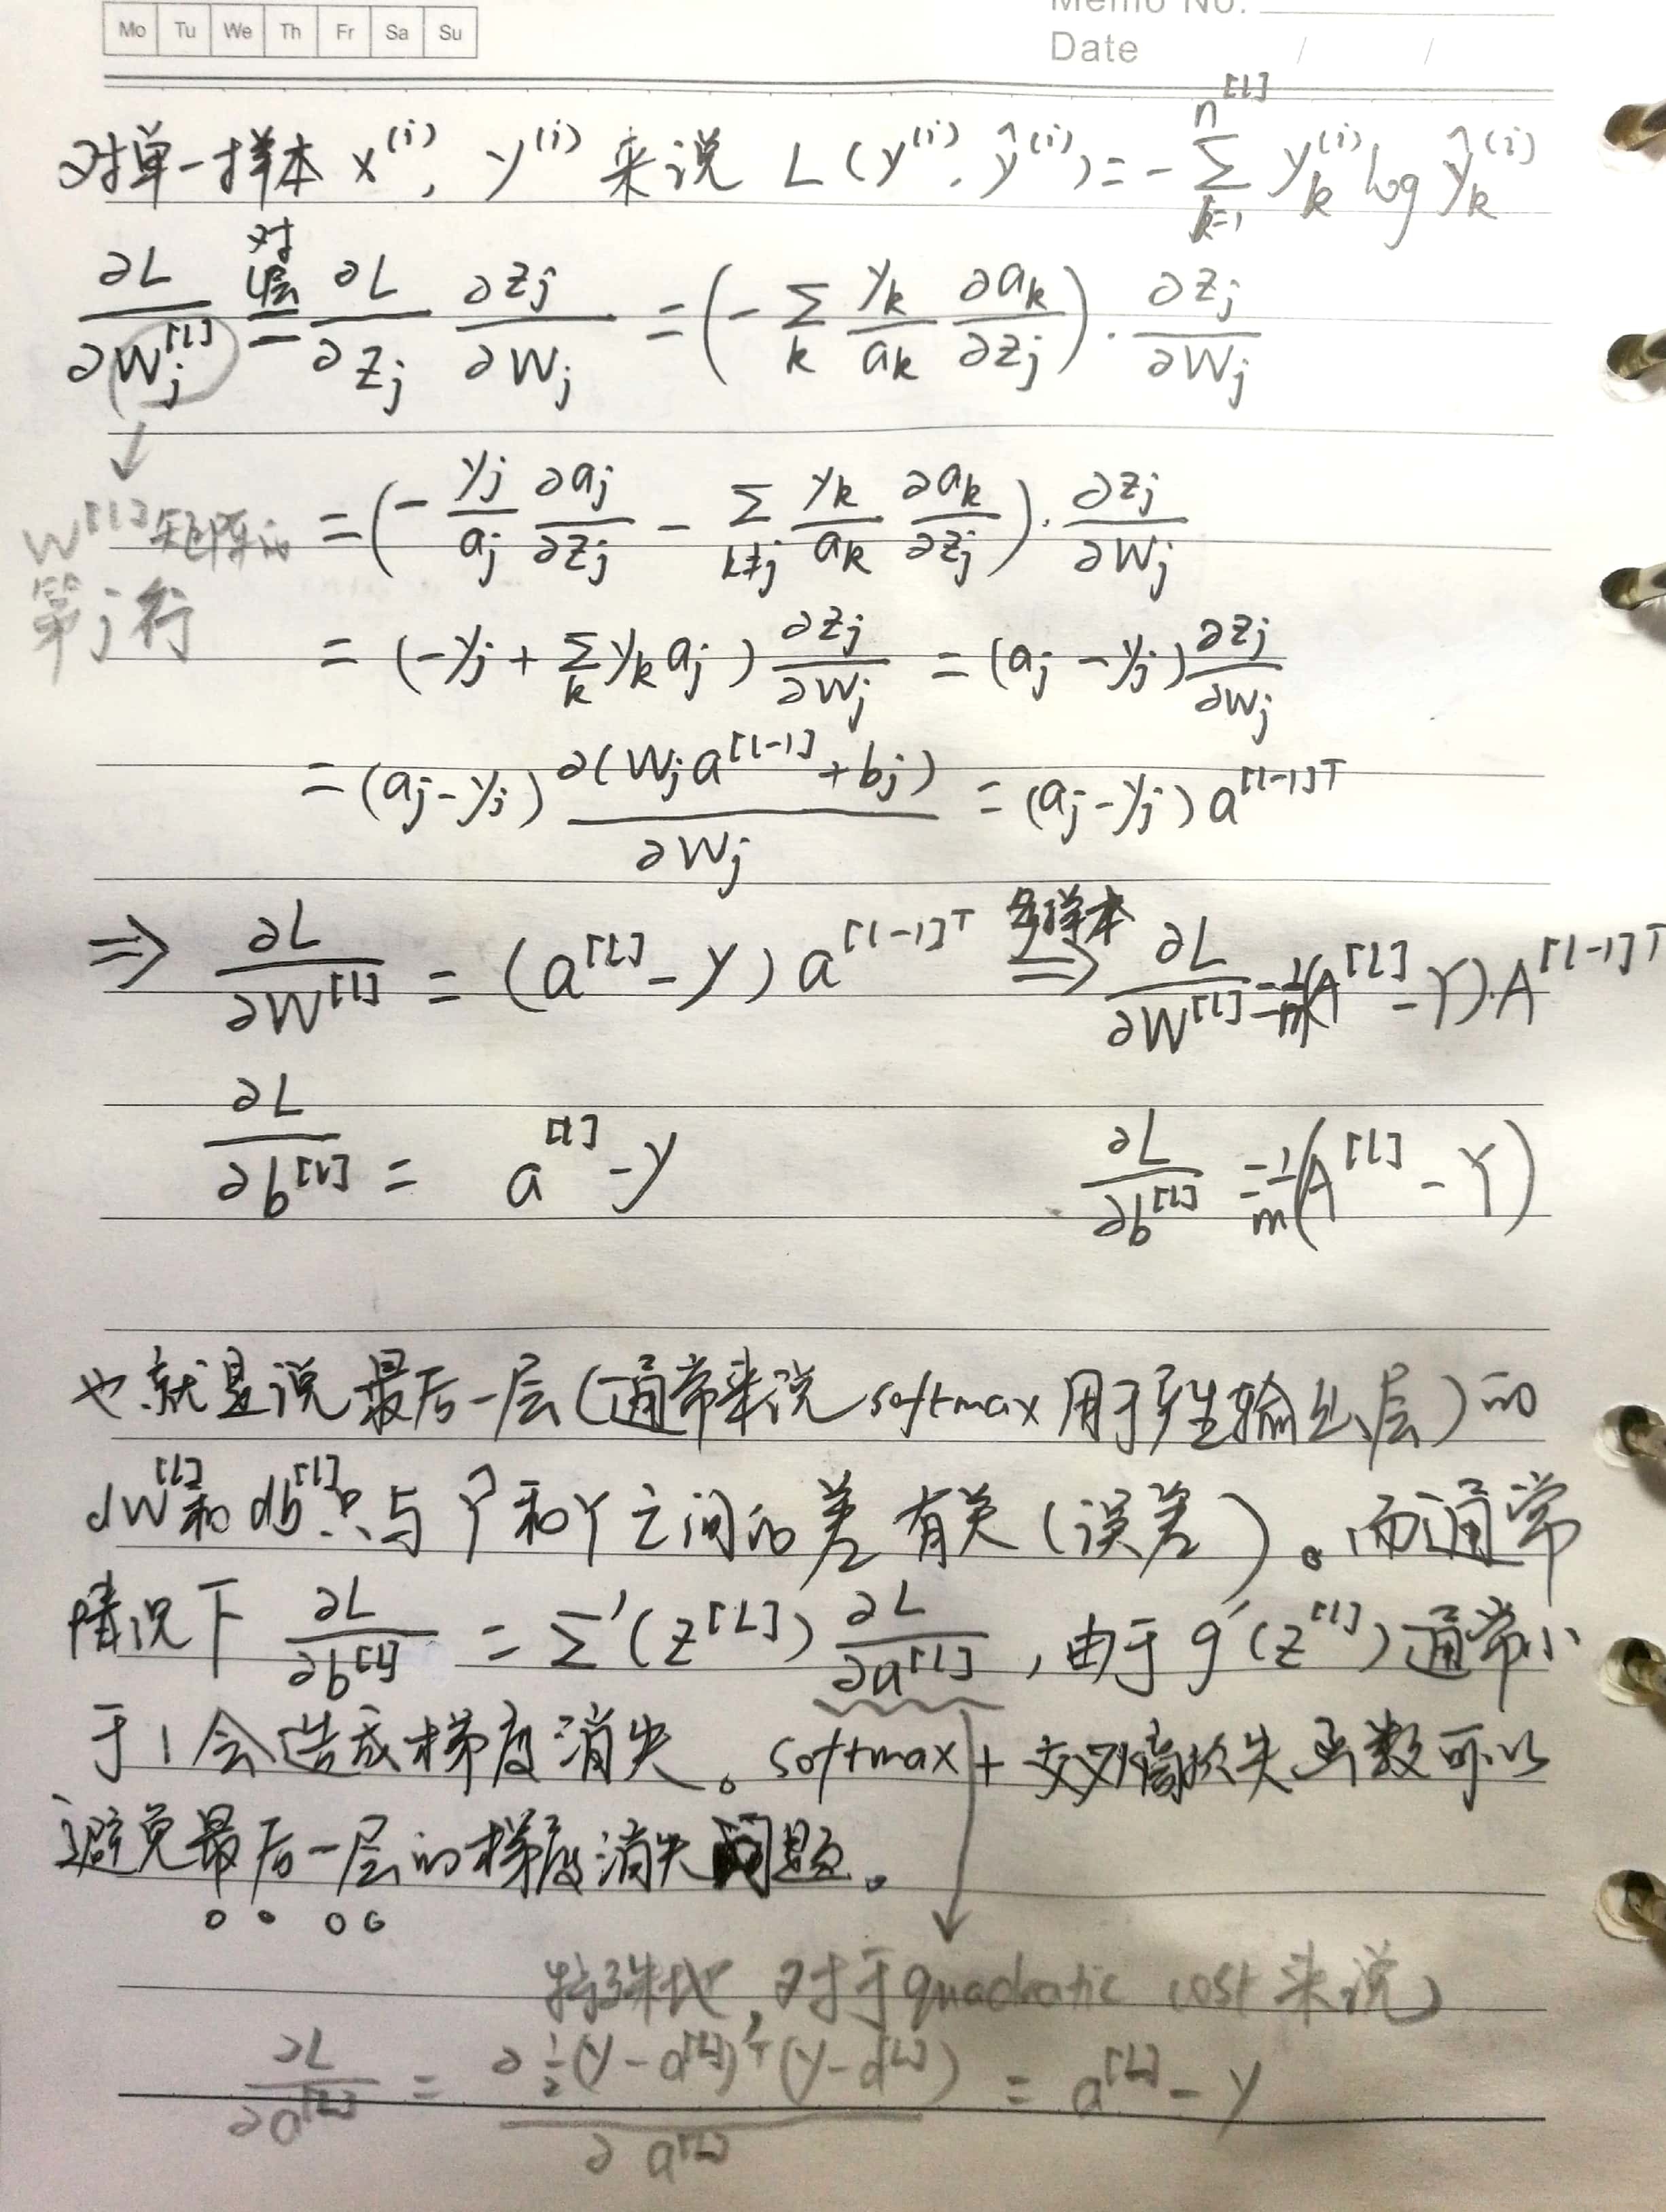 Mo Tu We Th Fr Sa Su
Memo No.
Date / /
对单一样本 x^(i), y^(i) 来说 L(y^(i), ŷ^(i)) = -∑_{k=1}^{n^[L]} y_k^(i) log ŷ_k^(i)
∂L/∂W_j^[L] =(对L层) ∂L/∂z_j ∂z_j/∂W_j = (-∑_k y_k/a_k ∂a_k/∂z_j)·∂z_j/∂W_j
W^[L]矩阵的
第j行
= (-y_j/a_j ∂a_j/∂z_j - ∑_{k≠j} y_k/a_k ∂a_k/∂z_j)·∂z_j/∂W_j
= (-y_j + ∑_k y_k a_j) ∂z_j/∂W_j = (a_j - y_j) ∂z_j/∂W_j
= (a_j - y_j) ∂(W_j a^[L-1] + b_j)/∂W_j = (a_j - y_j) a^[L-1]T
⇒ ∂L/∂W^[L] = (a^[L] - y) a^[L-1]T 多样本⇒ ∂L/∂W^[L] = 1/m (A^[L] - Y)·A^[L-1]T
∂L/∂b^[L] = a^[L] - y ∂L/∂b^[L] = 1/m (A^[L] - Y)
也就是说最后一层(通常来说softmax用于产生输出层)的
dW^[L]和db^[L]只与Ŷ和Y之间的差有关(误差)。而通常
情况下 ∂L/∂b^[L] = ∑'(z^[L]) ∂L/∂a^[L], 由于g'(z^[L])通常小
于1会造成梯度消失。softmax + 交叉熵损失函数可以
避免最后一层的梯度消失问题。
特殊地,对于quadratic cost来说
∂L/∂a^[L] = ∂ 1/2 (y - a^[L])^T (y - a^[L]) / ∂a^[L] = a^[L] - y